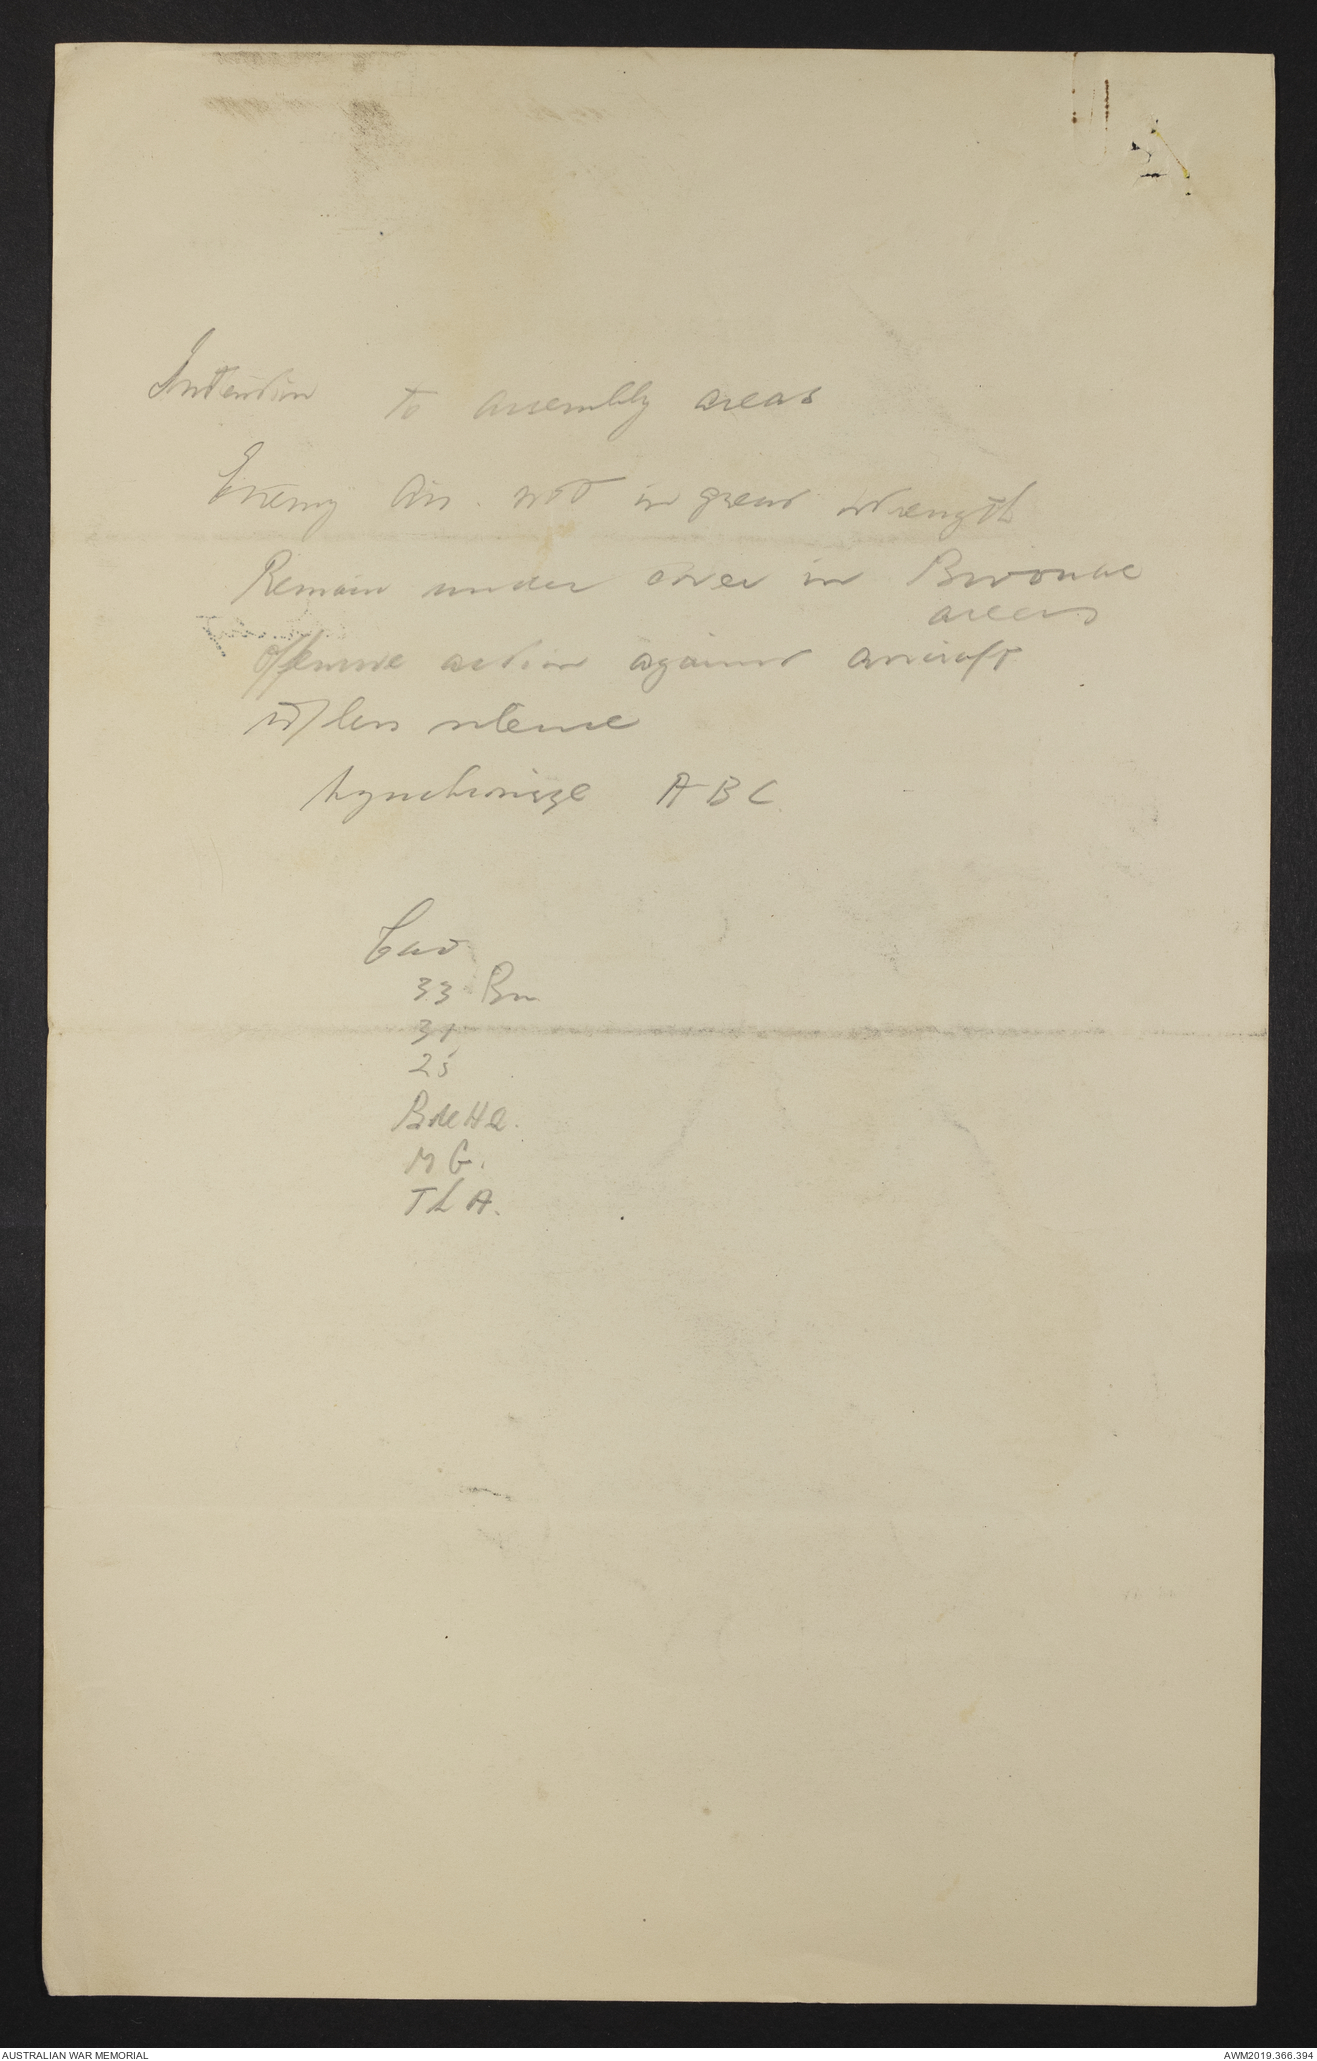 Intention to assembly areas
Enemy Air. not in great strength
Remain under cover in Bivouac
areas
offensive action against aircraft
W/less silence
Synchronize A B C
Cav
33 Bn
31
25
Bde HQ.
M G.
T L A.
AUSTRALIAN WAR MEMORIAL
AWM2019.366.394